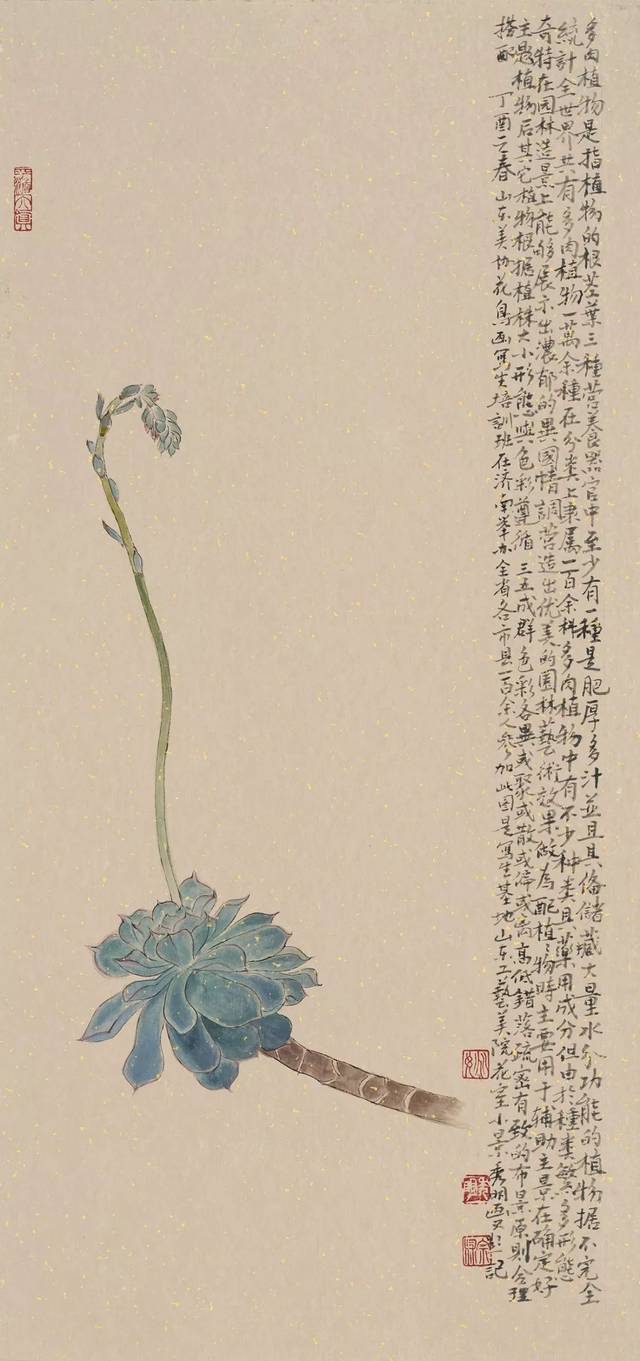 多肉植物是指植物的根茎葉三種营養器官中至少有一種是肥厚多汁並且具偹儲藏大量水分功能的植物據不完全
統計全世界共有多肉植物一萬余種在分类上隶属一百余科多肉植物中有不少种类具藥用成分但由於種类繁多形態
奇特在园林造景上能够展示出濃郁的異國情調营造出优美的園林藝術效果做為配植物時主要用于辅助主景在确定好
主景植物后其它植物根据植株大小形態與色彩尊循三五成群色彩各異或聚或散或高低錯落疏密有致的布景原则合理
搭配 丁酉之春山东美协花鳥画寫生培訓班在济南举办全省各市县一百余人参加此图是寫生基地山东工藝美院花室小景秀明画又記